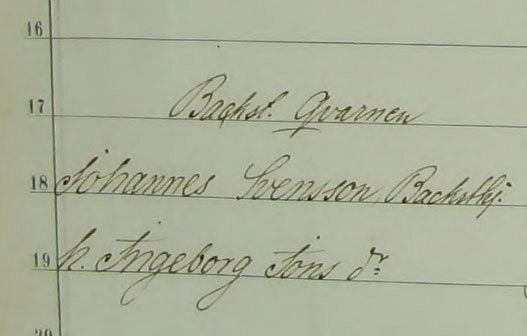 16
17 Backst. Qvarnen
18 Johannes Svensson, Backsthj.
19 h. Ingeborg Jons dr
20